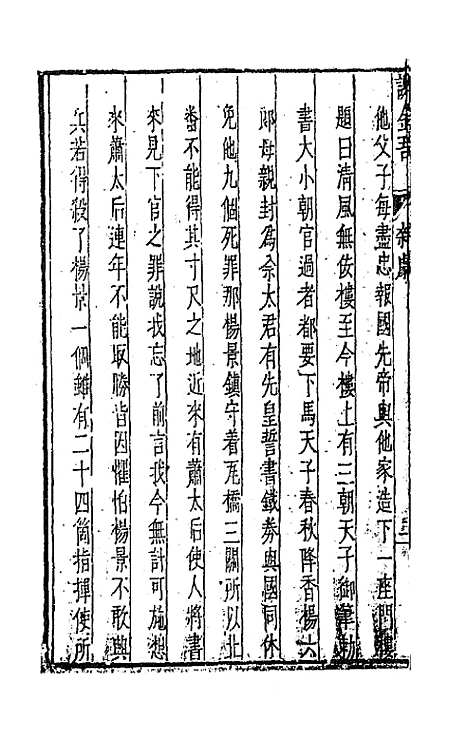 謝金吾
雜劇
他父子每盡忠報國先帝與他家造下一座門樓
題曰清風無佞樓至今樓上有三朝天子御筆勅
書大小朝官過者都要下馬天子春秋降香楊六
郎母親封為佘太君有先皇誓書鐵券與國同休
免他九個死罪那楊景鎮守着瓦橋三關所以北
番不能得其寸尺之地近來有蕭太后使人將書
來見下官之罪說我忘了前言我今無計可施想
來蕭太后連年不能取勝皆因懼怕楊景不敢與
兵若得殺了楊景一個雖有二十四箇指揮使所